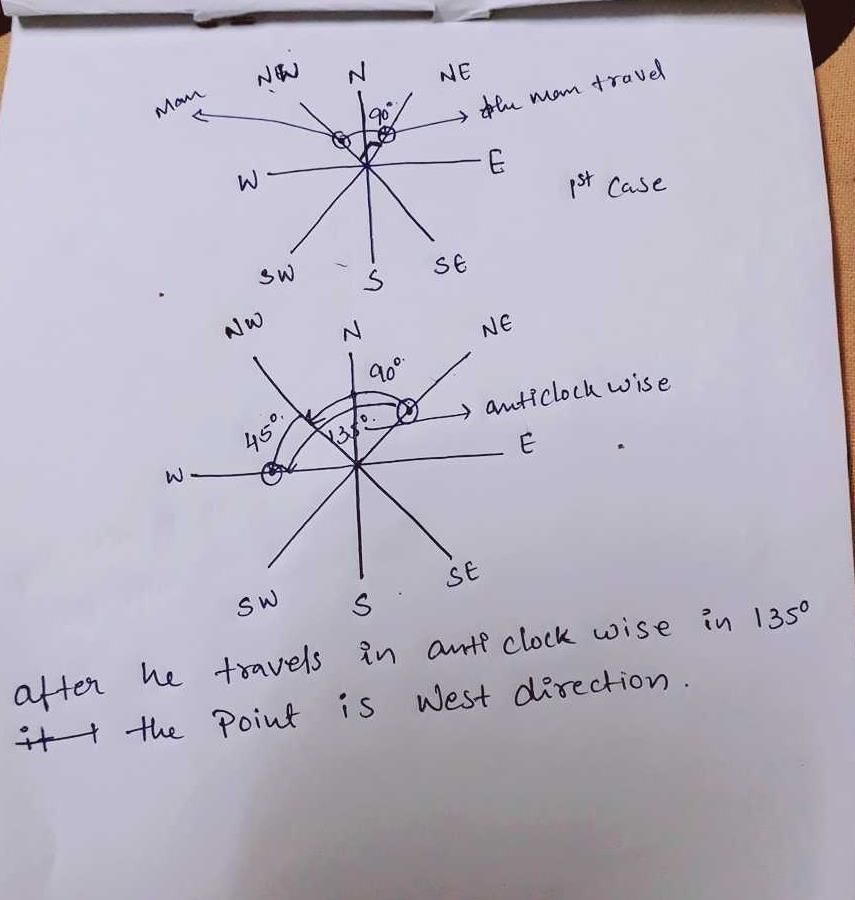 NW N NE
Man 90° the man travel
W E
1st Case
SW S SE
NW N NE
90°
45° 135° anticlock wise
W E
SW S SE
after he travels in anti clock wise in 135°
it the Point is West direction.